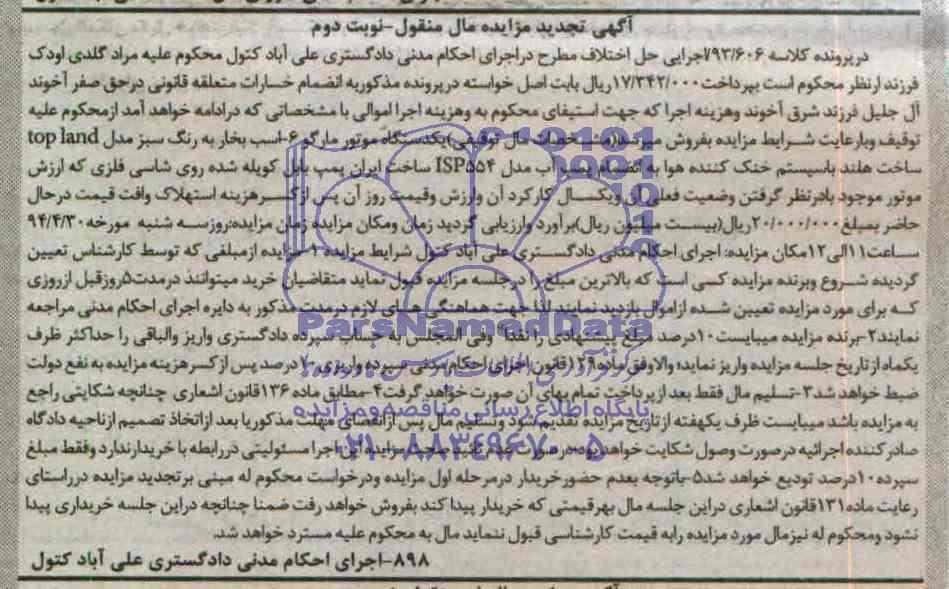 آگهی تجدید مزایده مال منقول-نوبت دوم
درپرونده کلاسه ۷۹۳/۶۰۶اجرایی حل اختلاف مطرح دراجرای احکام مدنی دادگستری علی آباد کتول محکوم علیه مراد گلدی اودک
فرزند ارنظر محکوم است بپرداخت۱۷/۳۴۲/۰۰۰ریال بابت اصل خواسته درپرونده مذکوربه انضمام خسارات متعلقه قانونی درحق صفر آخوند
آل جلیل فرزند شرق آخوند وهزینه اجرا که جهت استیفای محکوم به وهزینه اجرا اموالی با مشخصاتی که درادامه خواهد آمد ازمحکوم علیه
توقیف وبارعایت شرایط مزایده بفروش میرسد(مشخصات مال توقیفی)یکدستگاه موتور مارگو۶-اسب بخار به رنگ سبز مدل top land
ساخت هلند باسیستم خنک کننده هوا به انضمام پمپ آب مدل ISP۵۵۴ ساخت ایران پمپ بابل کوپله شده روی شاسی فلزی که ارزش
موتور موجود بادرنظر گرفتن وضعیت فعلی آن ویکسال کارکرد آن وارزش وقیمت روز آن پس ازکسرهزینه استهلاک وافت قیمت درحال
حاضر بمبلغ۲۰/۰۰۰/۰۰۰ریال(بیست میلیون ریال)برآورد وارزیابی گردید زمان ومکان مزایده زمان مزایده:روزسه شنبه مورخه۹۴/۴/۳۰
ساعت۱۱الی۱۲مکان مزایده: اجرای احکام مدنی دادگستری علی آباد کتول شرایط مزایده۱-مزایده ازمبلغی که توسط کارشناس تعیین
گردیده شروع وبرنده مزایده کسی است که بالاترین مبلغ را درجلسه مزایده قبول نماید متقاضیان خرید میتوانند درمدت۵روزقبل ازروزی
که برای مورد مزایده تعیین شده ازاموال بازدید نمایند لذا جهت هماهنگی های لازم درمدت مذکور به دایره اجرای احکام مدنی مراجعه
نمایند۲-برنده مزایده میبایست۱۰درصد مبلغ پیشنهادی را نقدا" وفی المجلس به حساب سپرده دادگستری واریز والباقی را حداکثر ظرف
یکماه ازتاریخ جلسه مزایده واریز نماید؛ والاوفق ماده قانون اجرای احکام مدنی سپرده واریزی درصد پس از کسر هزینه مزایده به نفع دولت
ضبط خواهد شد۳-تسلیم مال فقط بعد ازپرداخت تمام بهای آن صورت خواهد گرفت۴-مطابق ماده۱۳۶قانون اشعاری چنانچه شکایتی راجع
به مزایده باشد میبایست ظرف یکهفته ازتاریخ مزایده تقدیم شود وتسلیم مال پس ازانقضای مهلت مذکوریا بعد ازاتخاذ تصمیم ازناحیه دادگاه
صادرکننده اجرائیه درصورت وصول شکایت خواهد بود؛ درصورت عدم تائید صحت مزایده این اجرا مسئولیتی دررابطه با خریدارندارد وفقط مبلغ
سپرده۱۰درصد تودیع خواهد شد۵-باتوجه بعدم حضورخریدار درمرحله اول مزایده ودرخواست محکوم له مبنی برتجدید مزایده درراستای
رعایت ماده۱۳۱قانون اشعاری دراین جلسه مال بهرقیمتی که خریدار پیدا کند بفروش خواهد رفت ضمنا چنانچه دراین جلسه خریداری پیدا
نشود ومحکوم له نیزمال مورد مزایده رابه قیمت کارشناسی قبول ننماید مال به محکوم علیه مسترد خواهد شد.
۸۹۸-اجرای احکام مدنی دادگستری علی آباد کتول
ParsNamadData
پایگاه اطلاع رسانی مناقصه و مزایده
۰۲۱-۸۸۳۴۹۶۷۰-۵